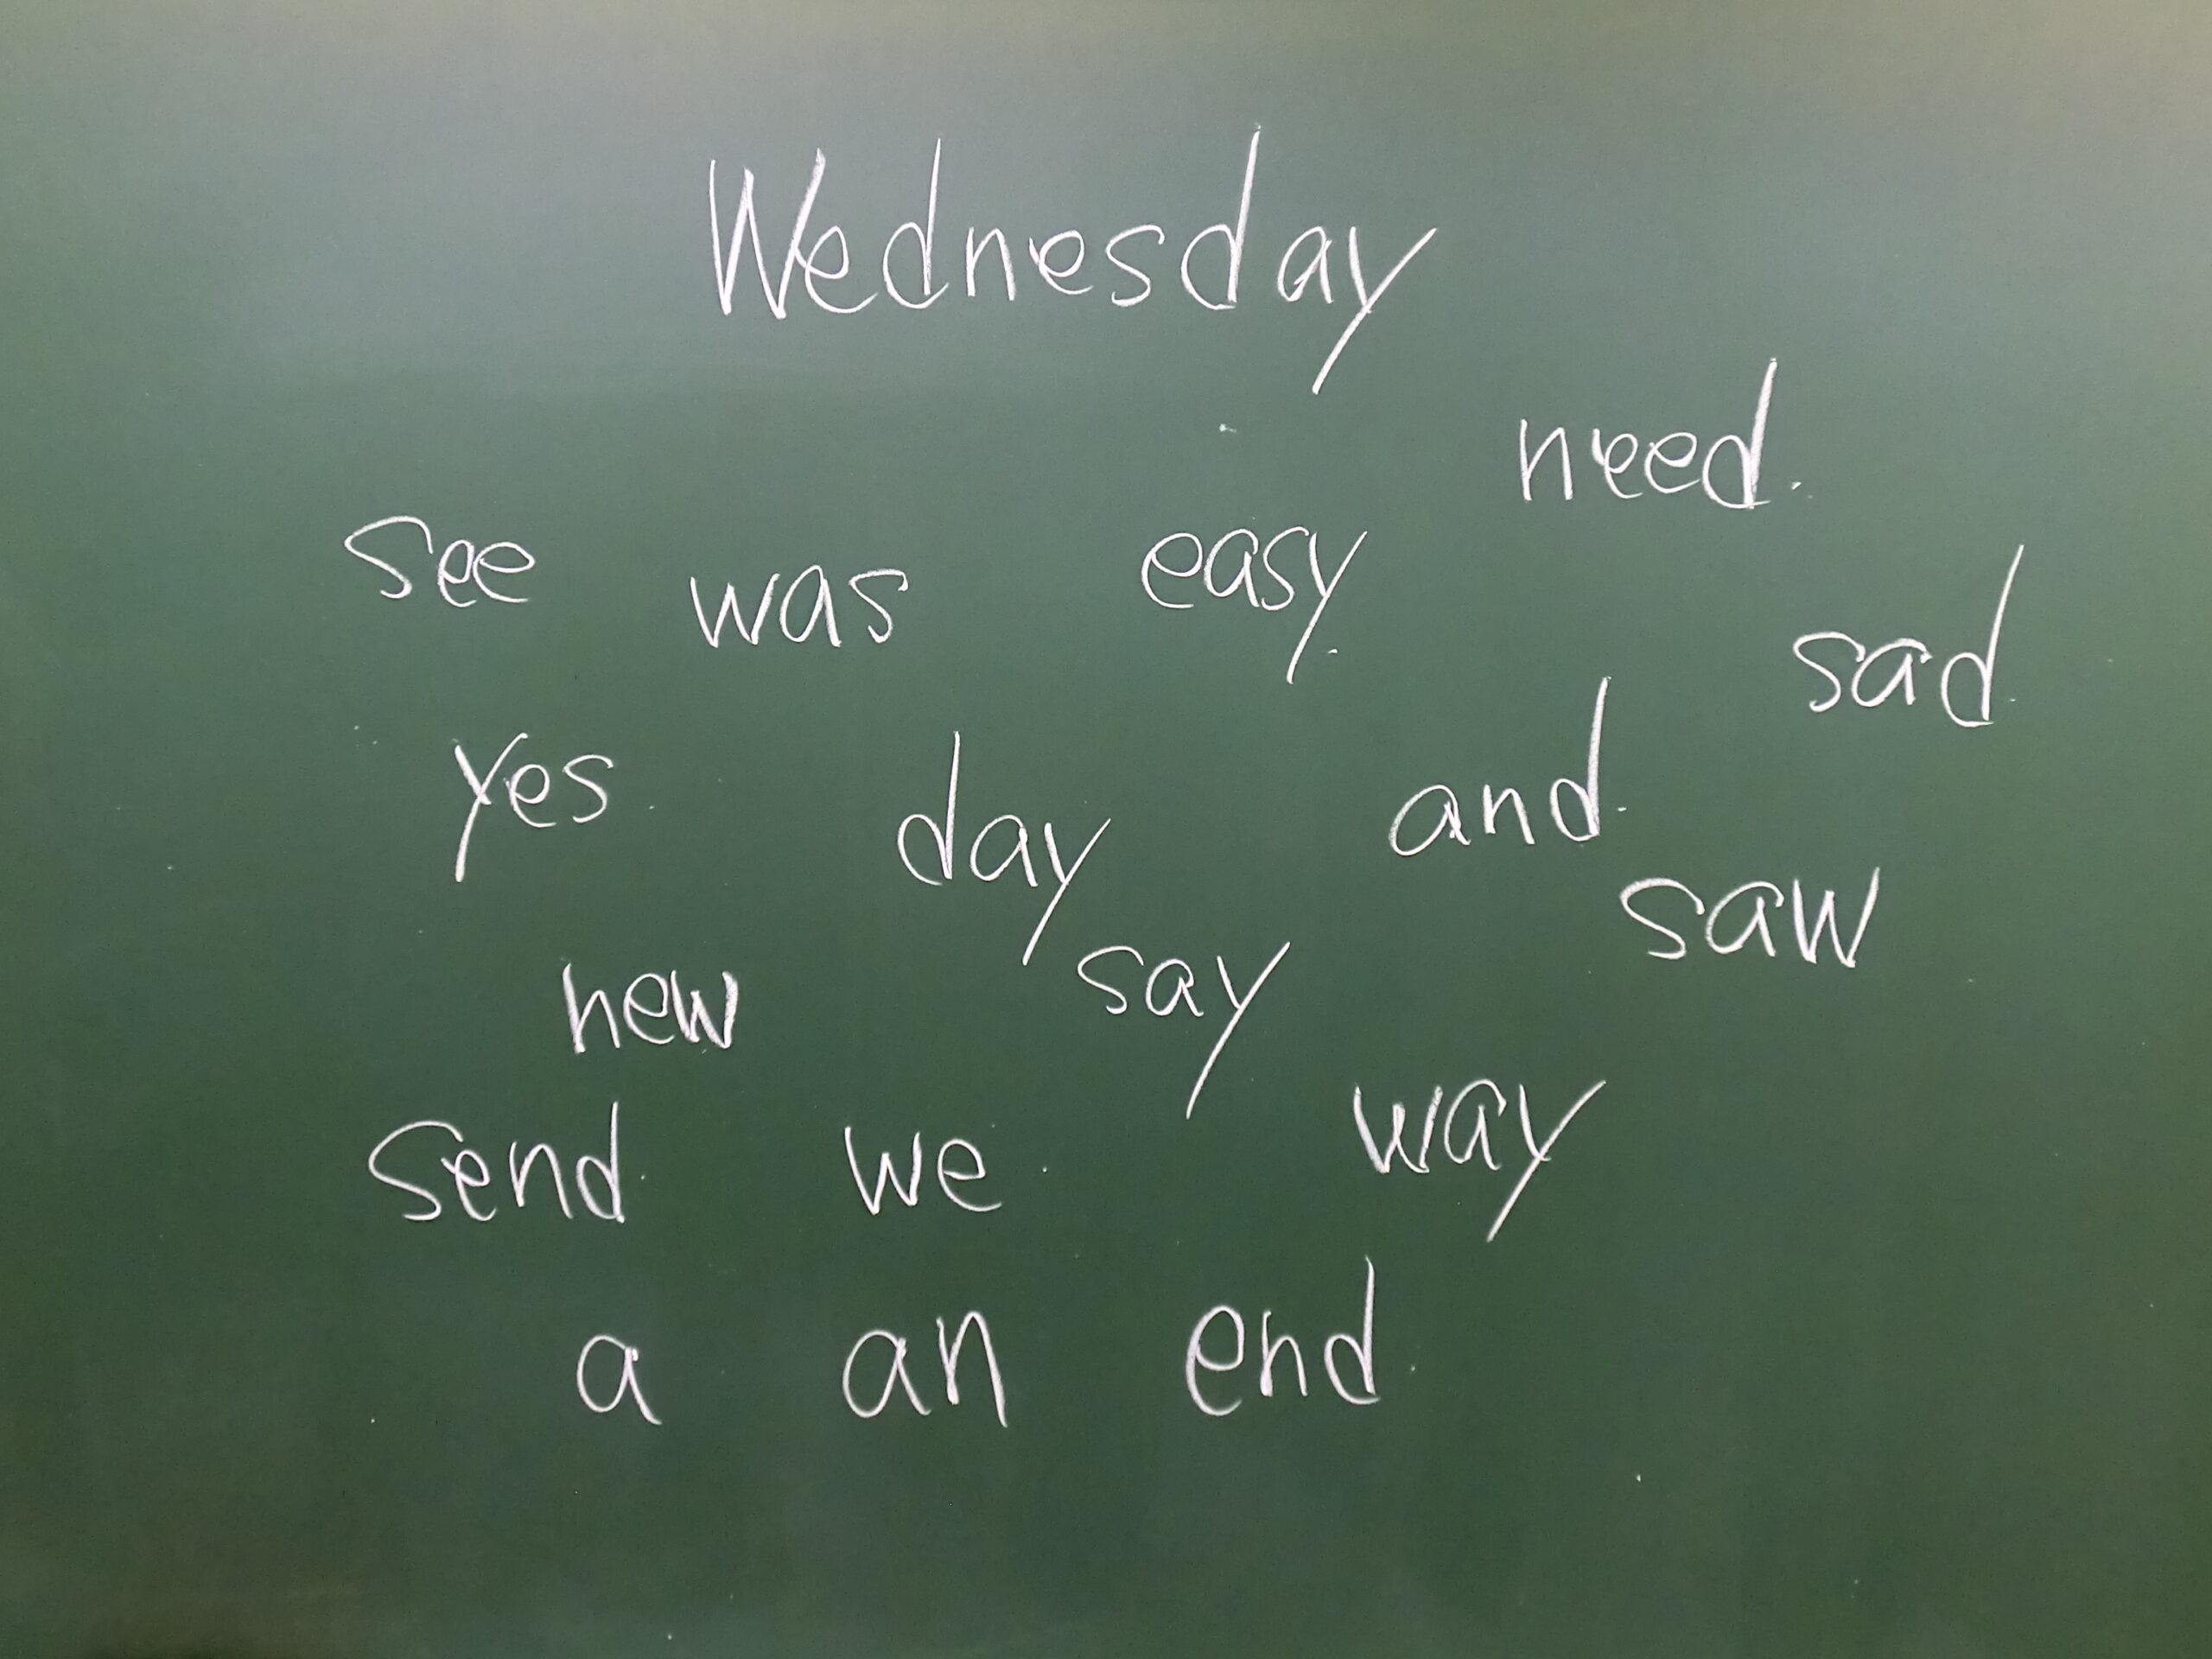 Wednesday
need
see was easy
sad
yes day and
saw
new say
send we way
a an end